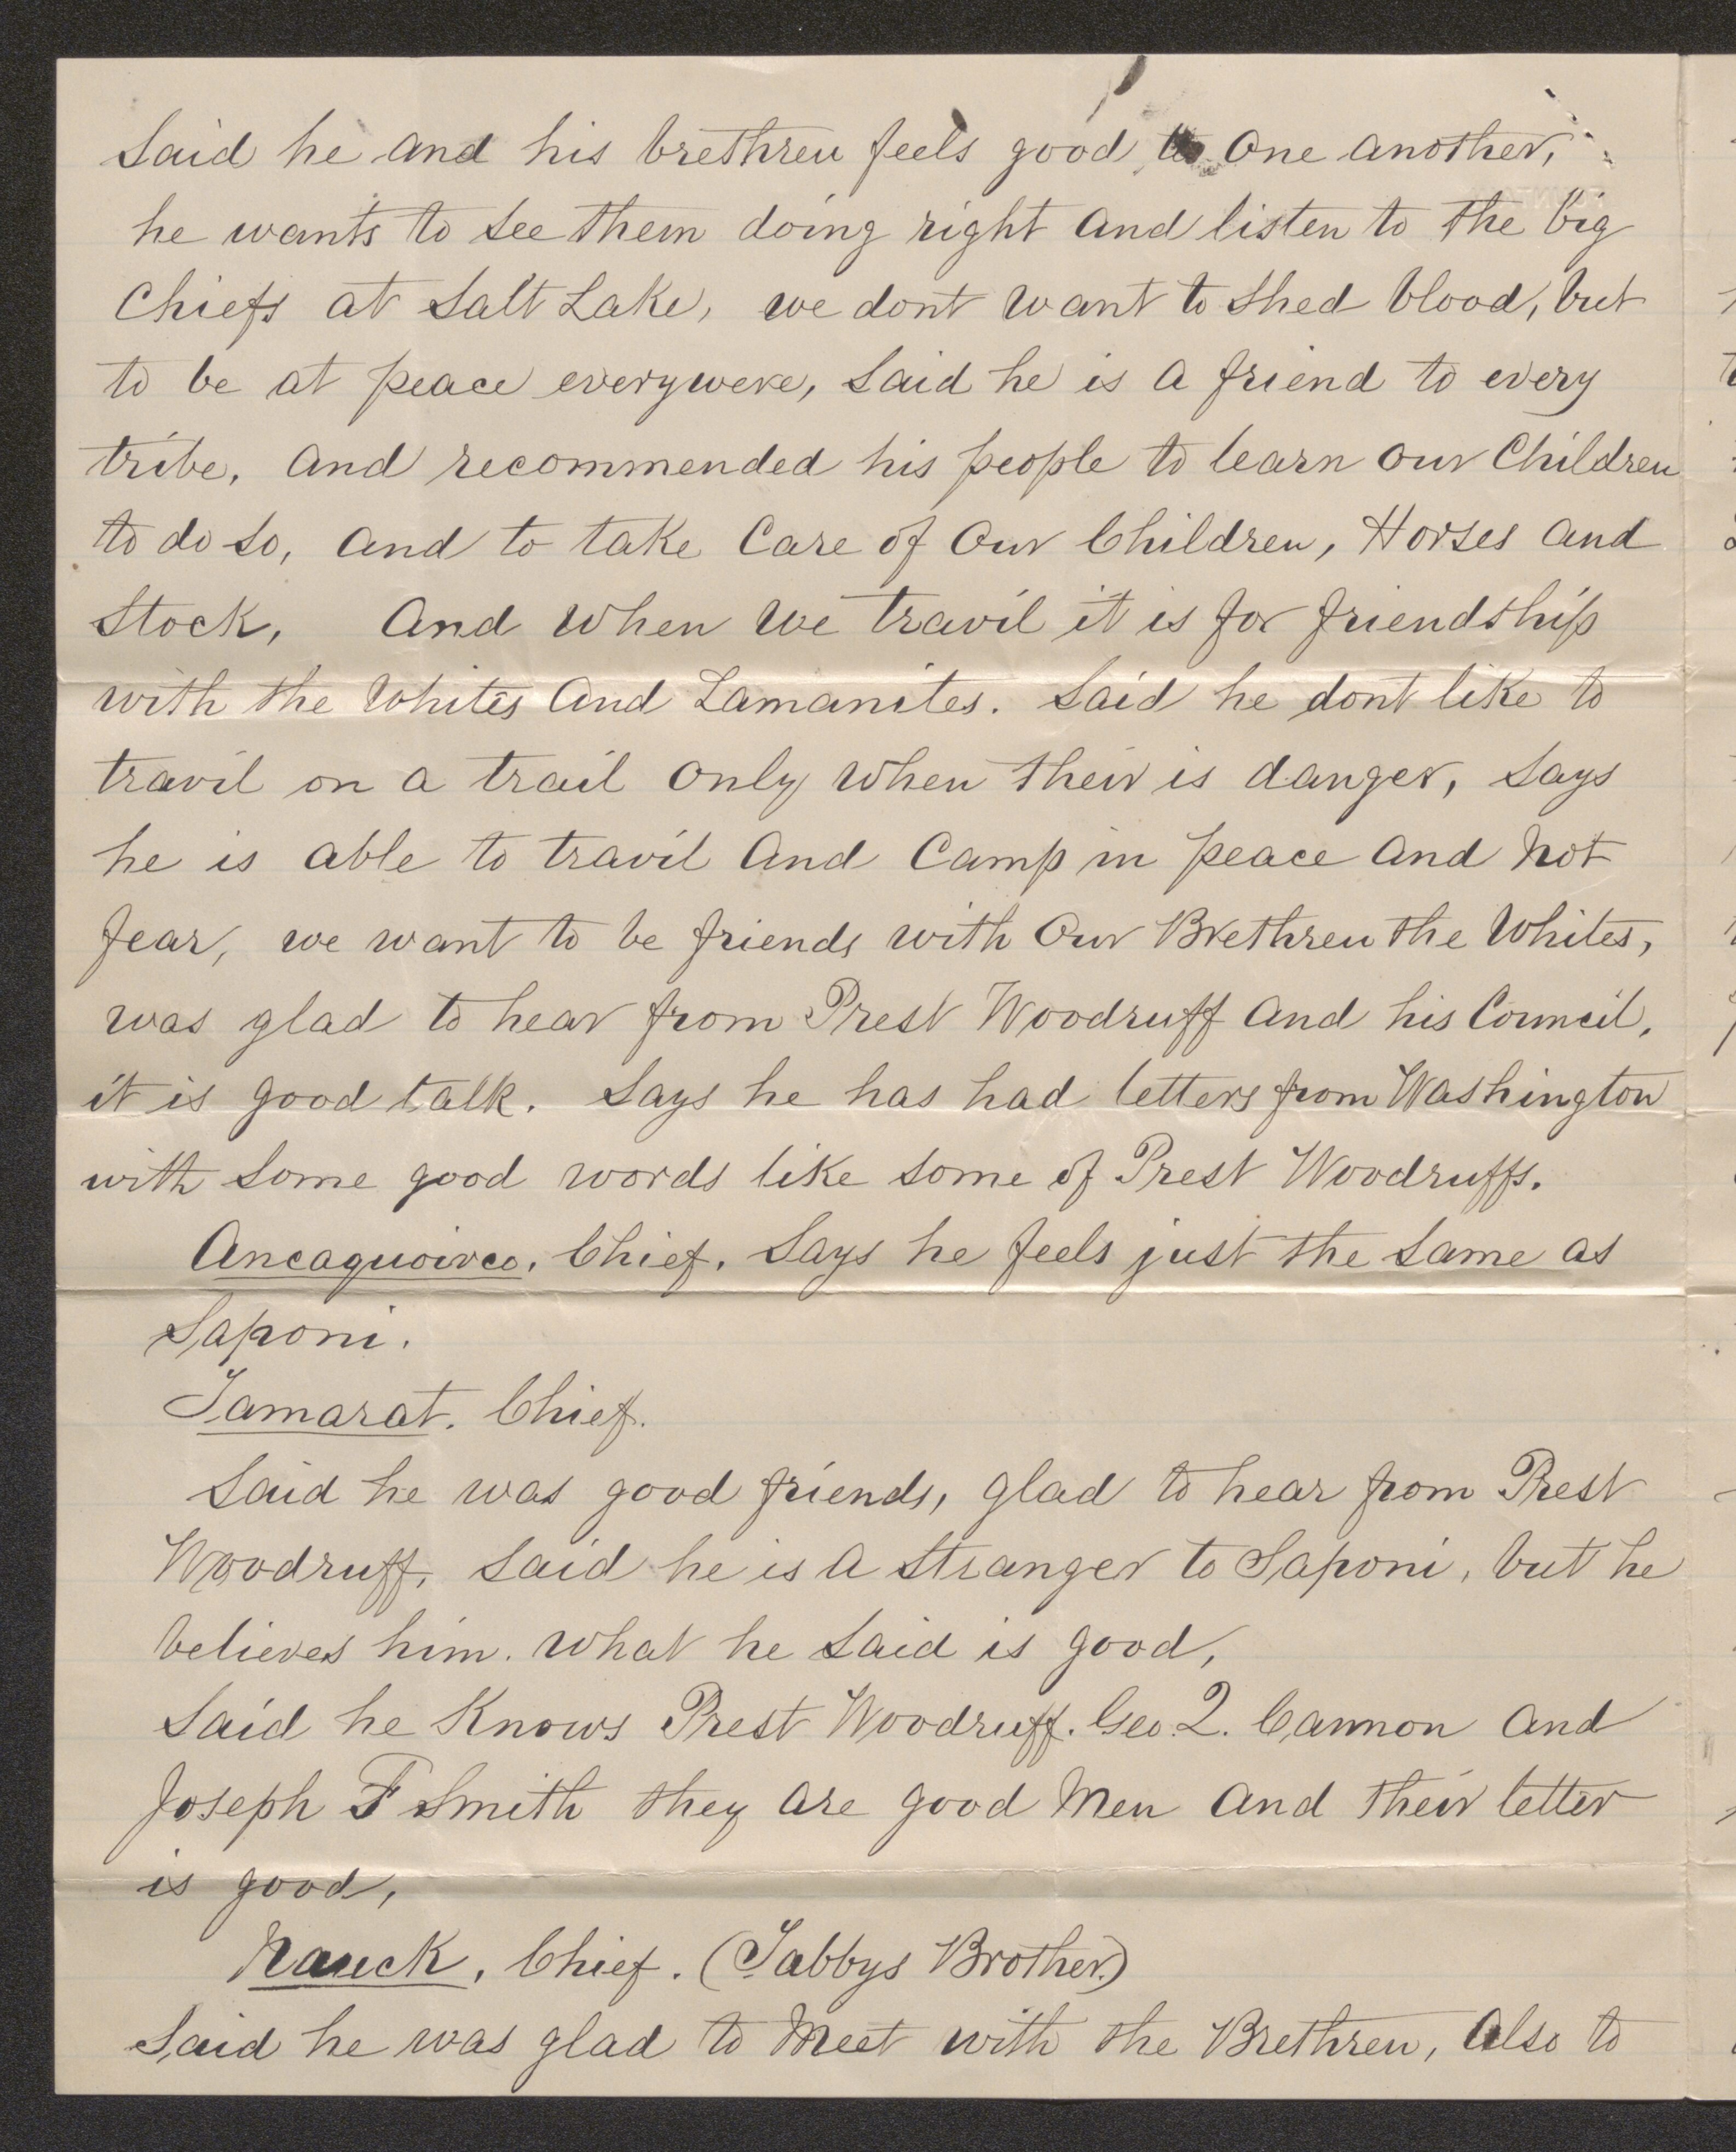 Said he and his brethren feels good to one another,
he wants to see them doing right and listen to the big
Chiefs at Salt Lake, we dont want to shed blood, but
to be at peace everywere, said he is a friend to every
tribe, and recommended his people to learn our Children
to do so, and to take Care of our Children, Horses and
Stock, And when we travil it is for friendship
with the Whites and Lamanites. Said he dont like to
travil on a trail only when their is danger, says
he is able to travil and Camp in peace and not
fear, we want to be friends with our Brethren the Whites,
was glad to hear from Prest Woodruff and his Council,
it is good talk. Says he has had letters from Washington
with some good words like some of Prest Woodruffs.
Ancaquoirco, Chief, Says he feels just the same as
Saponi.
Tamarat. Chief.
Said he was good friends, glad to hear from Prest
Woodruff, Said he is a stranger to Saponi, but he
believes him. what he said is good,
Said he Knows Prest Woodruff. Geo. Q. Cannon and
Joseph F Smith they are good Men and their letter
is good,
Nauck, Chief. (Tabbys Brother.)
Said he was glad to Meet with the Brethren, also to